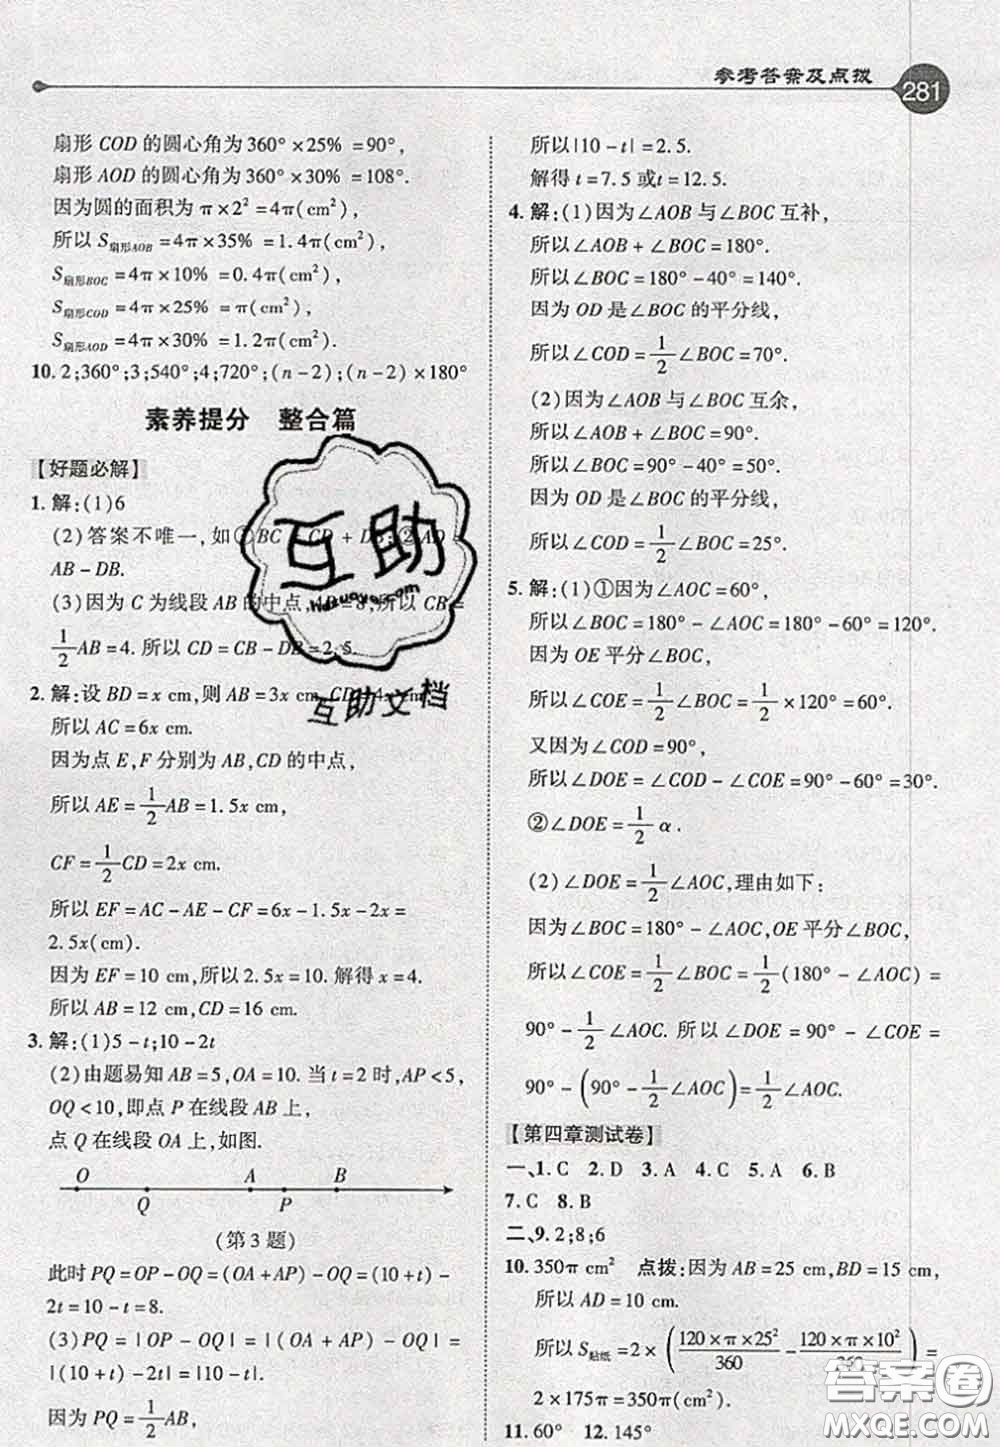 参考答案及点拨
281
扇形 COD 的圆心角为 360° ×25% =90°,
扇形 AOD 的圆心角为 360° ×30% =108°.
因为圆的面积为 π×2² =4π(cm²),
所以 S扇形AOB =4π ×35% =1.4π(cm²),
S扇形BOC =4π ×10% =0.4π(cm²),
S扇形COD =4π ×25% =π(cm²),
S扇形AOD =4π ×30% =1.2π(cm²).
10. 2;360°;3;540°;4;720°;(n-2);(n-2)×180°
素养提分 整合篇
【好题必解】
1. 解:(1)6
(2)答案不唯一,如①BC = CD + DB;②AD =
AB-DB.
(3)因为 C 为线段 AB 的中点,AB=8,所以 CB =
1/2 AB=4. 所以 CD = CB - DB =2.5.
2. 解:设 BD = x cm,则 AB =3x cm,CD=4x cm.
所以 AC =6x cm.
因为点 E,F 分别为 AB,CD 的中点,
所以 AE = 1/2 AB =1.5x cm,
CF = 1/2 CD =2x cm.
所以 EF =AC - AE - CF =6x -1.5x -2x =
2.5x(cm).
因为 EF =10 cm,所以 2.5x =10. 解得 x =4.
所以 AB =12 cm,CD =16 cm.
3. 解:(1)5-t;10-2t
(2)由题易知 AB =5,OA =10. 当 t =2 时,AP <5,
OQ <10,即点 P 在线段 AB 上,
点 Q 在线段 OA 上,如图.
O A B
Q P
(第 3 题)
此时 PQ = OP - OQ =(OA +AP)- OQ =(10 +t)-
2t =10 -t =8.
(3) PQ = | OP - OQ | = | (OA + AP) - OQ | =
|(10 +t)-2t| = |10 -t|.
因为 PQ = 1/2 AB,
所以|10 -t| =2.5.
解得 t=7.5 或t=12.5.
4. 解:(1)因为∠AOB 与∠BOC 互补,
所以∠AOB +∠BOC =180°.
所以∠BOC =180° -40° =140°.
因为 OD 是∠BOC 的平分线,
所以∠COD = 1/2 ∠BOC =70°.
(2)因为∠AOB 与∠BOC 互余,
所以∠AOB +∠BOC =90°.
所以∠BOC =90° -40° =50°.
因为 OD 是∠BOC 的平分线,
所以∠COD = 1/2 ∠BOC =25°.
5. 解:(1)①因为∠AOC =60°,
所以∠BOC =180° -∠AOC =180° -60° =120°.
因为 OE 平分∠BOC,
所以∠COE = 1/2 ∠BOC = 1/2 ×120° =60°.
又因为∠COD =90°,
所以∠DOE =∠COD -∠COE =90° -60° =30°.
②∠DOE = 1/2 α.
(2)∠DOE = 1/2 ∠AOC,理由如下:
因为∠BOC =180° -∠AOC,OE 平分∠BOC,
所以∠COE = 1/2 ∠BOC = 1/2 (180° -∠AOC) =
90° - 1/2 ∠AOC. 所以∠DOE =90° -∠COE =
90° -(90° - 1/2 ∠AOC) = 1/2 ∠AOC.
【第四章测试卷】
一、1. C 2. D 3. A 4. C 5. A 6. B
7. C 8. B
二、9. 2;8;6
10. 350π cm² 点拨:因为 AB =25 cm,BD =15 cm,
所以 AD =10 cm.
所以 S贴纸 =2×(120×π×25²/360 - 120×π×10²/360) =
2×175π =350π(cm²).
11. 60° 12. 145°
互助
Hdzuoye.com
互助文档
答案圈
MXQE.COM